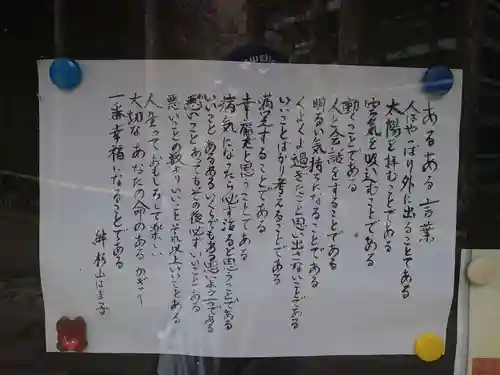 あるある言葉
人はやっぱり外に出ることである
太陽を拝むことである
空気を吸い込むことである
動くことである
人と会話をすることである
明るい気持になることである
くよくよ過ぎたこと思い出さないことである
いいことばかり考えることである
満足することである
幸福だと思うことである
病気になったら必ず治ると思うことである
いいことあるあるいくらでもある思いようである
悪いことあってもその後必ずいいことある
悪いことの数よりいいことそれ以上いいことある
人生っておもしろして楽しい
大切なあなたの命のあるかぎり
一番幸福になることである
杉山はま子